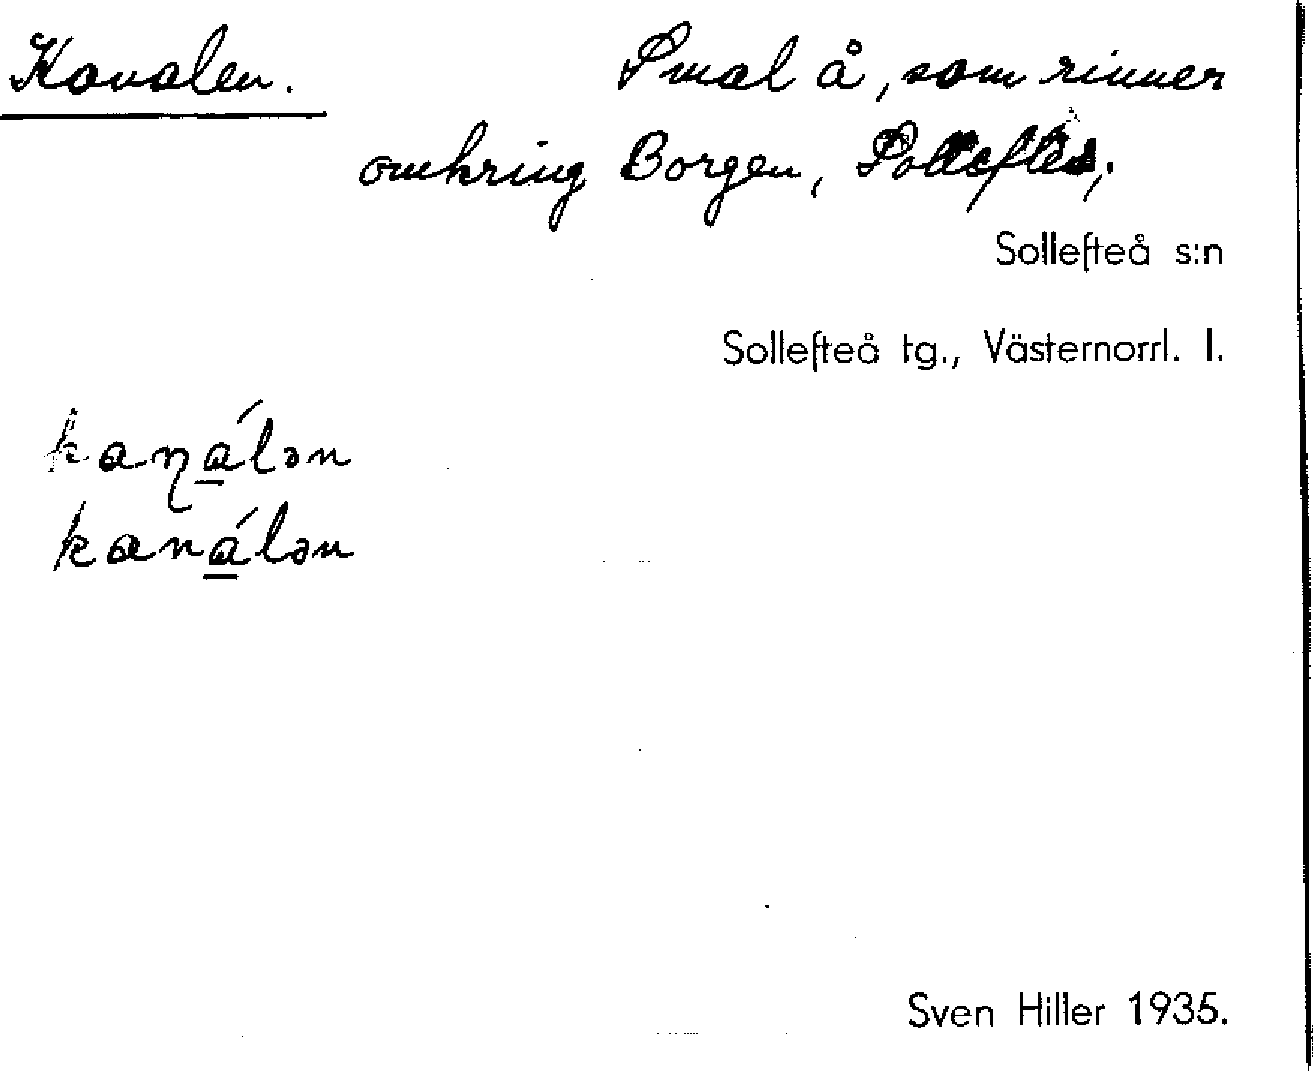 Kanalen. Smal å, som rinner
omkring Borgen, Sollefteå,
Sollefteå s:n
Sollefteå tg., Västernorrl. l.
kaņá̲lən
kaná̲lən
Sven Hiller 1935.